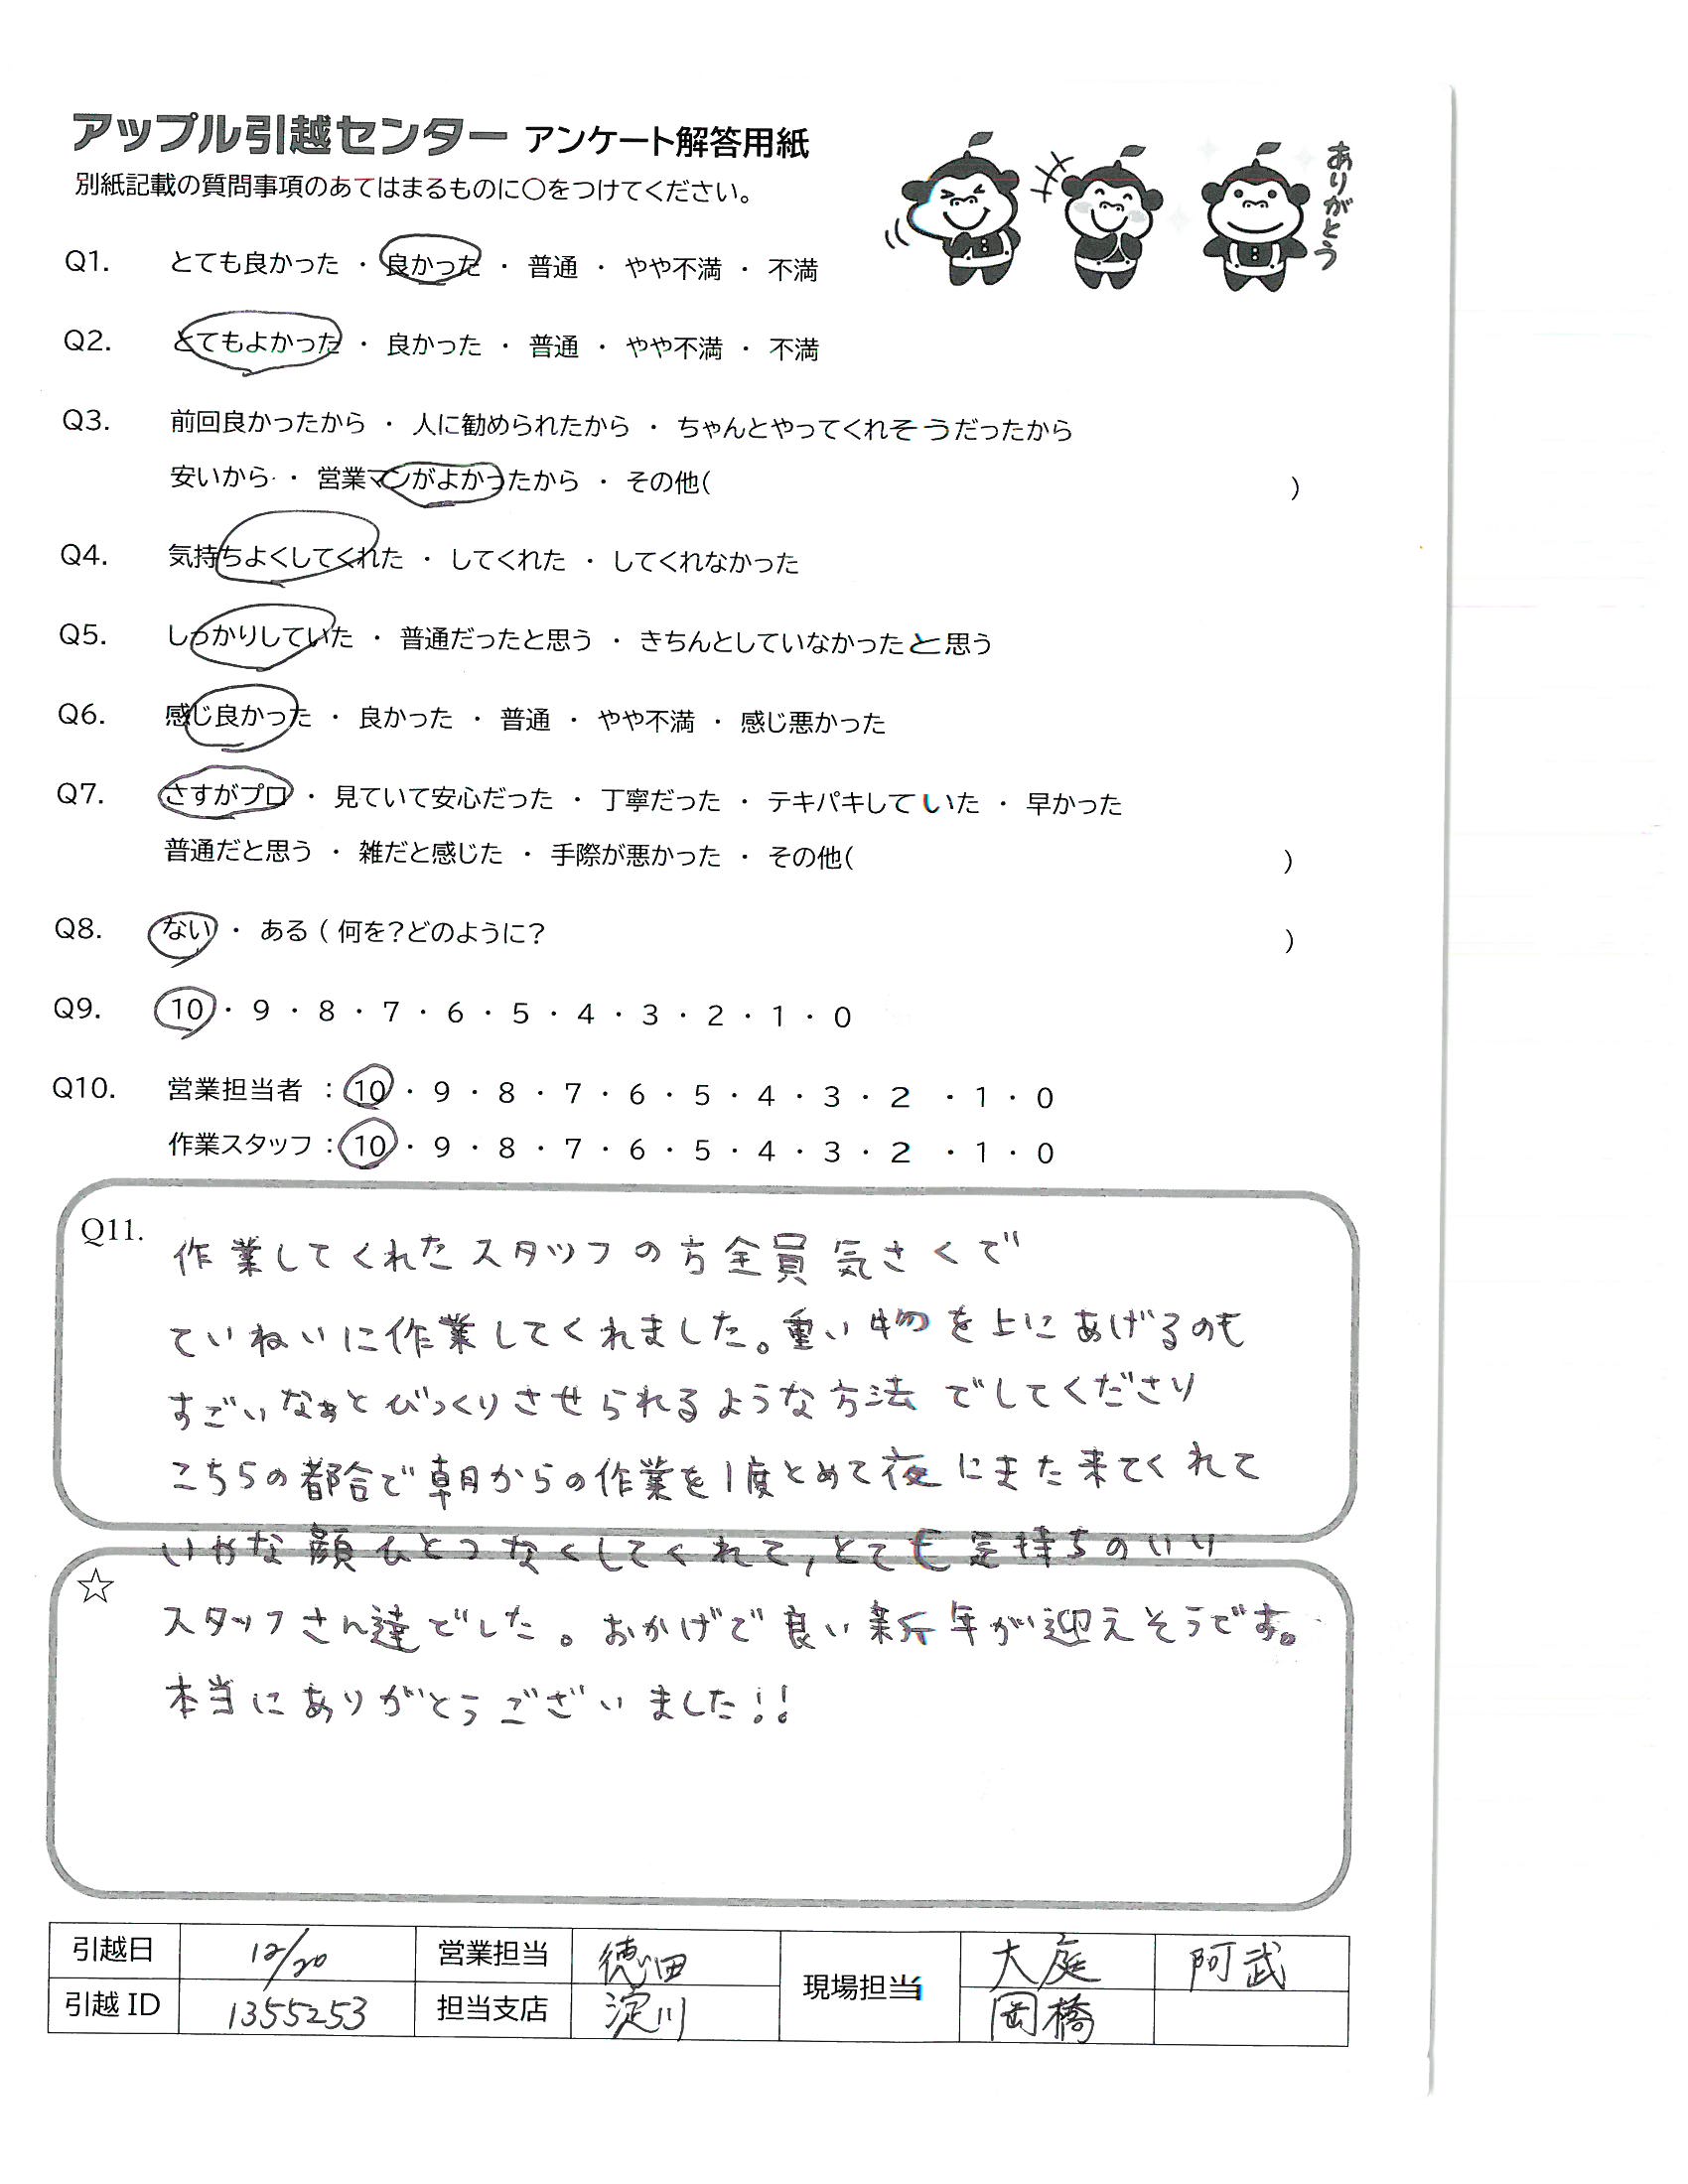 アップル引越センター アンケート解答用紙
別紙記載の質問事項のあてはまるものに○をつけてください。
ありがとう
Q1. とても良かった ・ 良かった ・ 普通 ・ やや不満 ・ 不満
Q2. とてもよかった ・ 良かった ・ 普通 ・ やや不満 ・ 不満
Q3. 前回良かったから ・ 人に勧められたから ・ ちゃんとやってくれそうだったから
安いから ・ 営業マンがよかったから ・ その他( )
Q4. 気持ちよくしてくれた ・ してくれた ・ してくれなかった
Q5. しっかりしていた ・ 普通だったと思う ・ きちんとしていなかったと思う
Q6. 感じ良かった ・ 良かった ・ 普通 ・ やや不満 ・ 感じ悪かった
Q7. さすがプロ ・ 見ていて安心だった ・ 丁寧だった ・ テキパキしていた ・ 早かった
普通だと思う ・ 雑だと感じた ・ 手際が悪かった ・ その他( )
Q8. ない ・ ある ( 何を?どのように? )
Q9. 10 ・ 9 ・ 8 ・ 7 ・ 6 ・ 5 ・ 4 ・ 3 ・ 2 ・ 1 ・ 0
Q10. 営業担当者 : 10 ・ 9 ・ 8 ・ 7 ・ 6 ・ 5 ・ 4 ・ 3 ・ 2 ・ 1 ・ 0
作業スタッフ : 10 ・ 9 ・ 8 ・ 7 ・ 6 ・ 5 ・ 4 ・ 3 ・ 2 ・ 1 ・ 0
Q11. 作業してくれたスタッフの方全員気さくで
ていねいに作業してくれました。重い物を上にあげるのも
すごいなぁとびっくりさせられるような方法でしてくださり
こちらの都合で朝からの作業を1度とめて夜にまた来てくれて
いやな顔ひとつなくしてくれて,とても気持ちのいい
☆
スタッフさん達でした。おかげで良い新年が迎えそうです。
本当にありがとうございました!!
引越日 12/20 営業担当 徳田 現場担当 大庭 阿武
引越ID 1355253 担当支店 淀川 岡橋